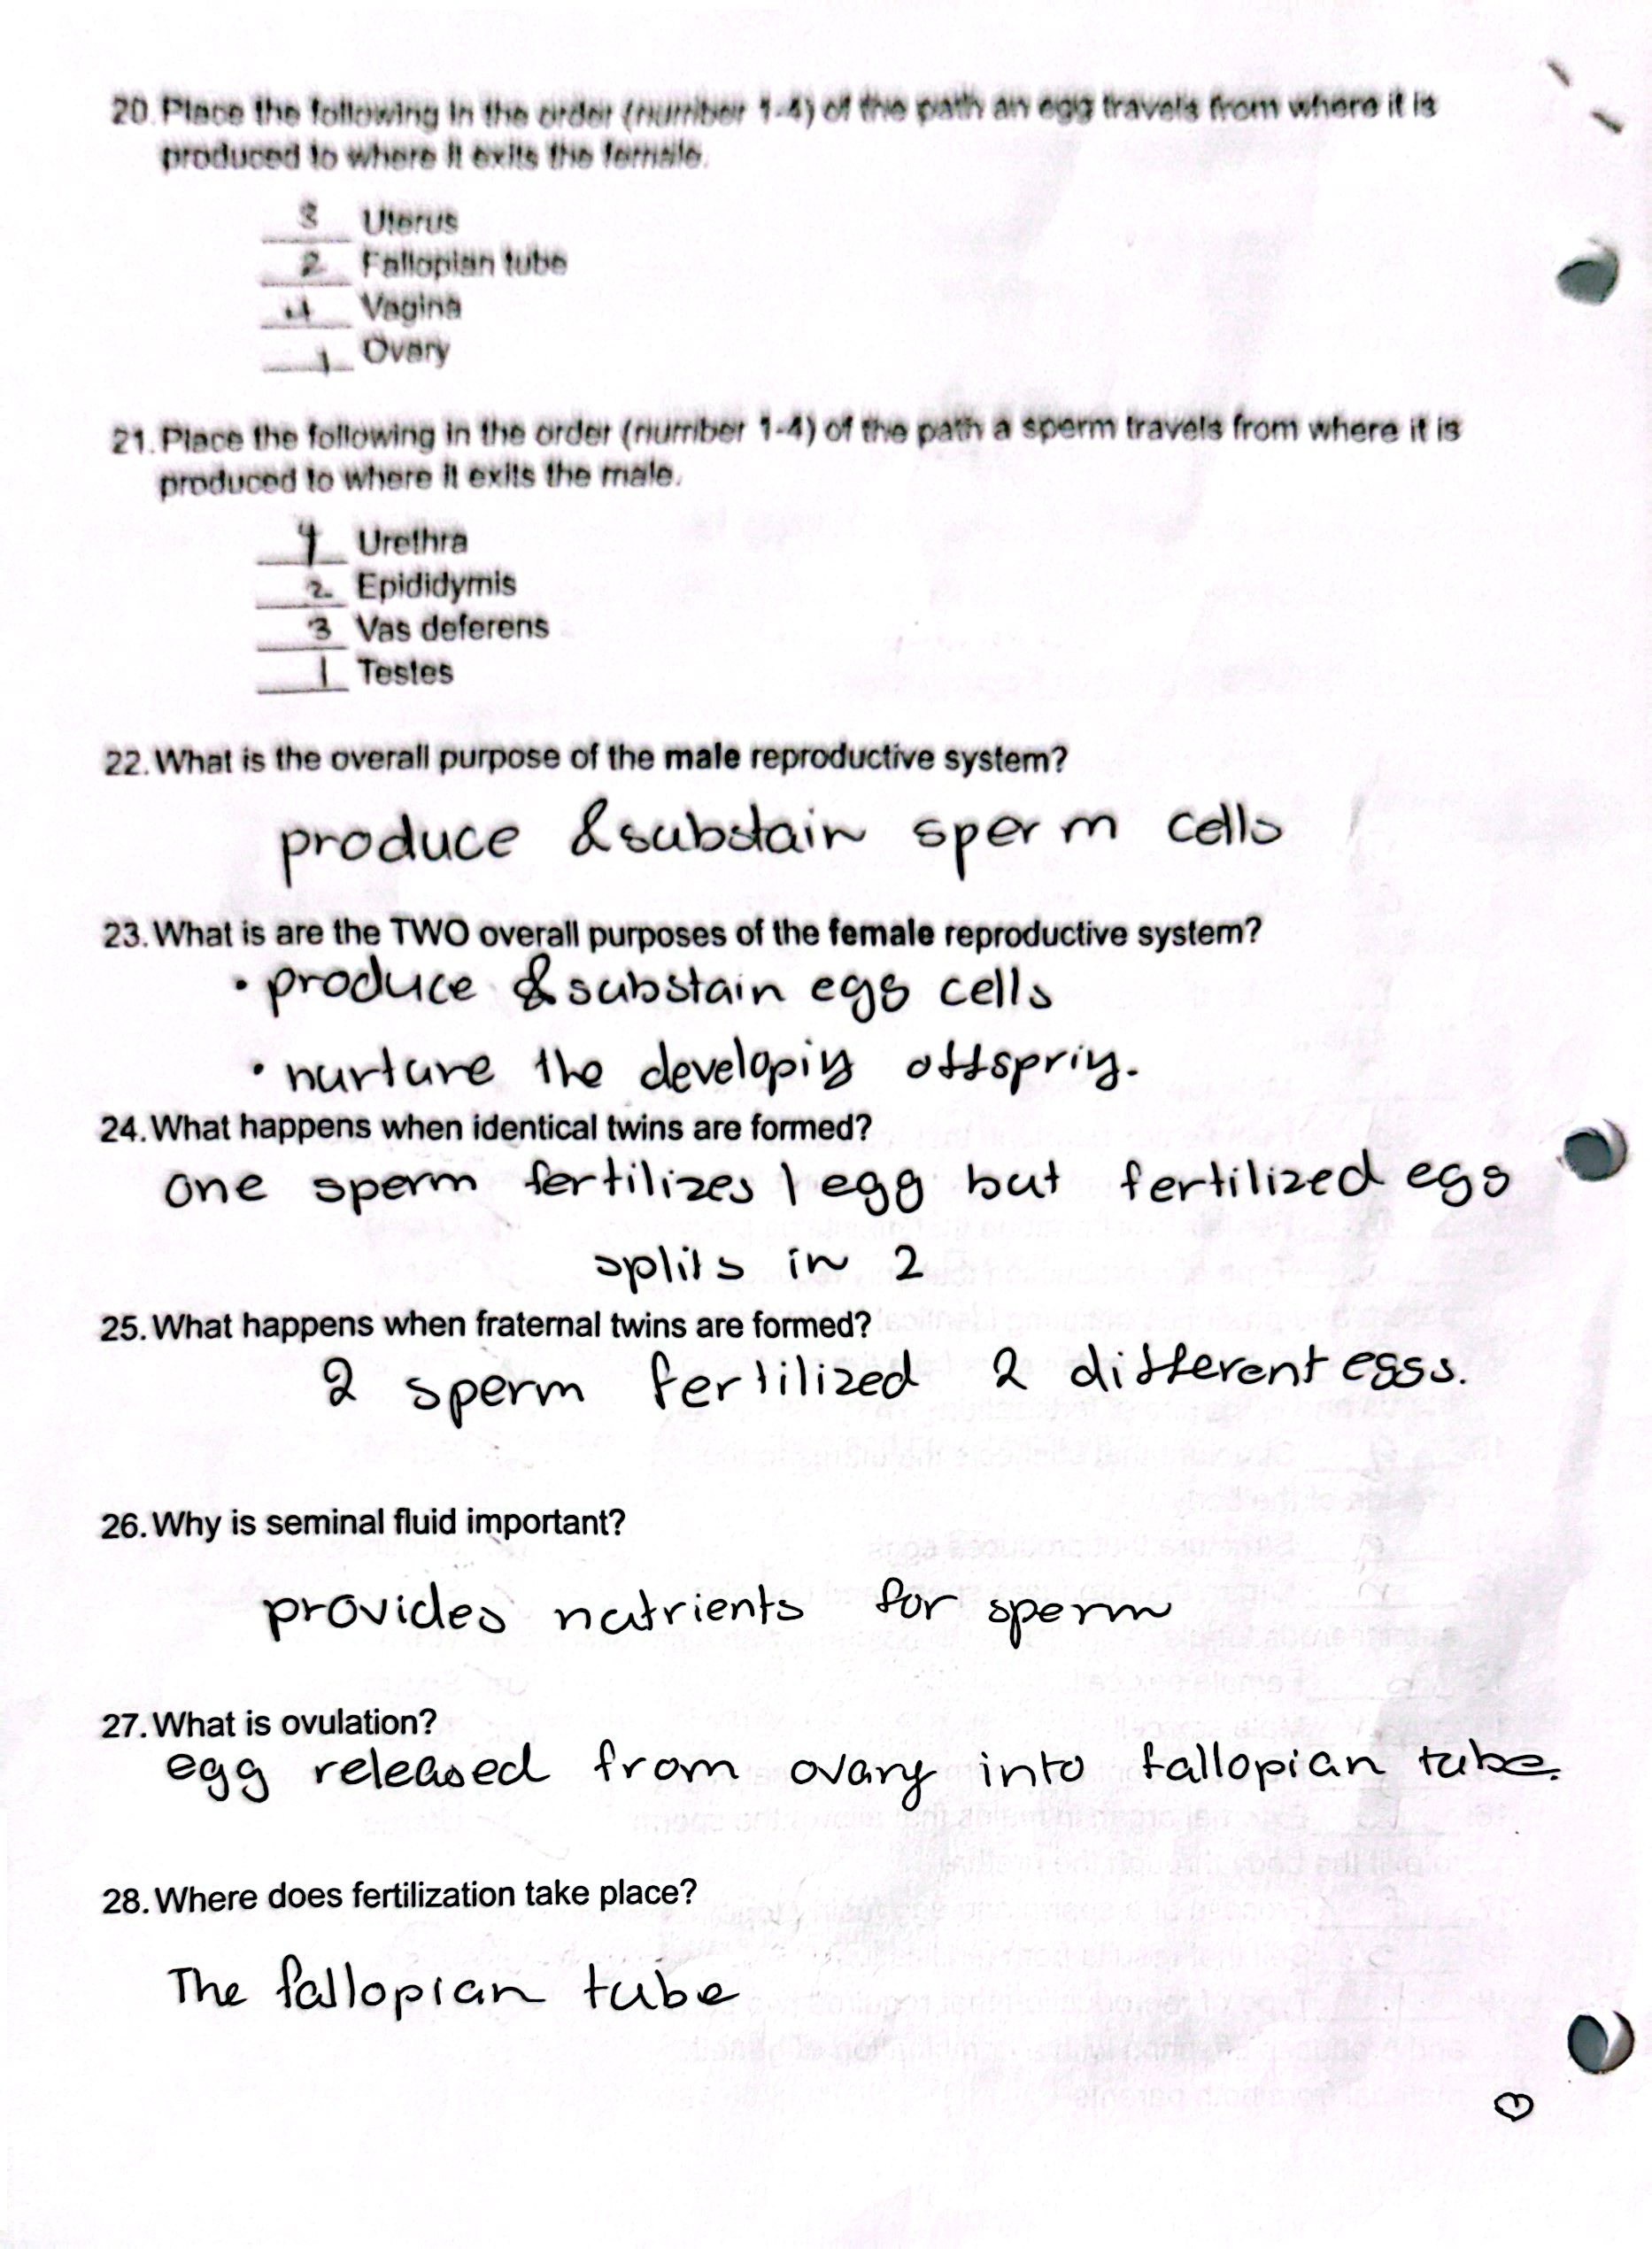 20. Place the following in the order (number 1-4) of the path an egg travels from where it is
produced to where it exits the female.
3 Uterus
2 Fallopian tube
4 Vagina
1 Ovary
21. Place the following in the order (number 1-4) of the path a sperm travels from where it is
produced to where it exits the male.
4 Urethra
2 Epididymis
3 Vas deferens
1 Testes
22. What is the overall purpose of the male reproductive system?
produce & substain sperm cells
23. What is are the TWO overall purposes of the female reproductive system?
• produce & substain egg cells
• nurture the developing offspring.
24. What happens when identical twins are formed?
one sperm fertilizes 1 egg but fertilized egg
splits in 2
25. What happens when fraternal twins are formed?
2 sperm fertilized 2 different eggs.
26. Why is seminal fluid important?
provides nutrients for sperm
27. What is ovulation?
egg released from ovary into fallopian tube.
28. Where does fertilization take place?
The fallopian tube